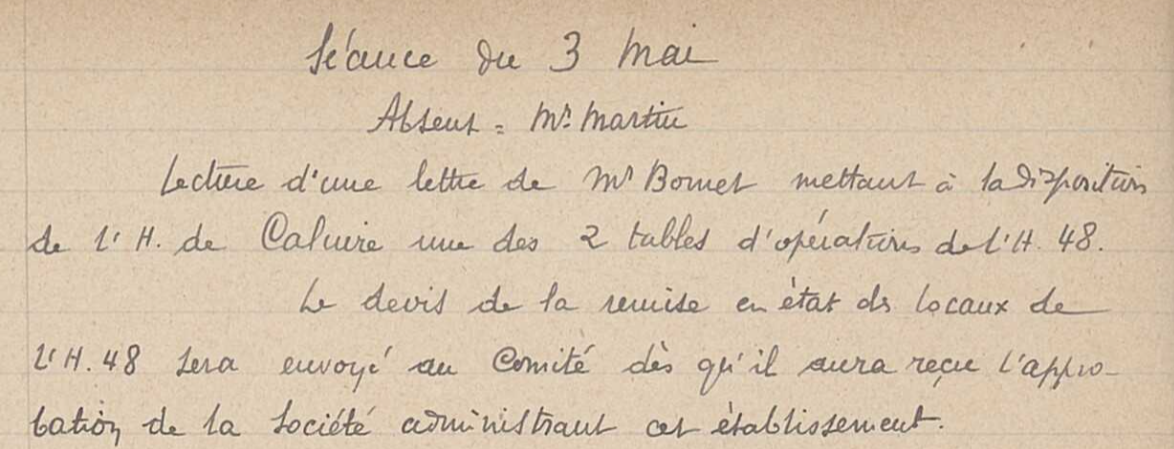 Séance du 3 Mai
Absent = Mr. Martin
Lecture d'une lettre de Mr Bornet mettant à la disposition
de l'H. de Caluire une des 2 tables d'opérations de l'H. 48.
Le devis de la remise en état des locaux de
l'H. 48 sera envoyé au Comité dès qu'il aura reçu l'appro-
bation de la Société administrant cet établissement.